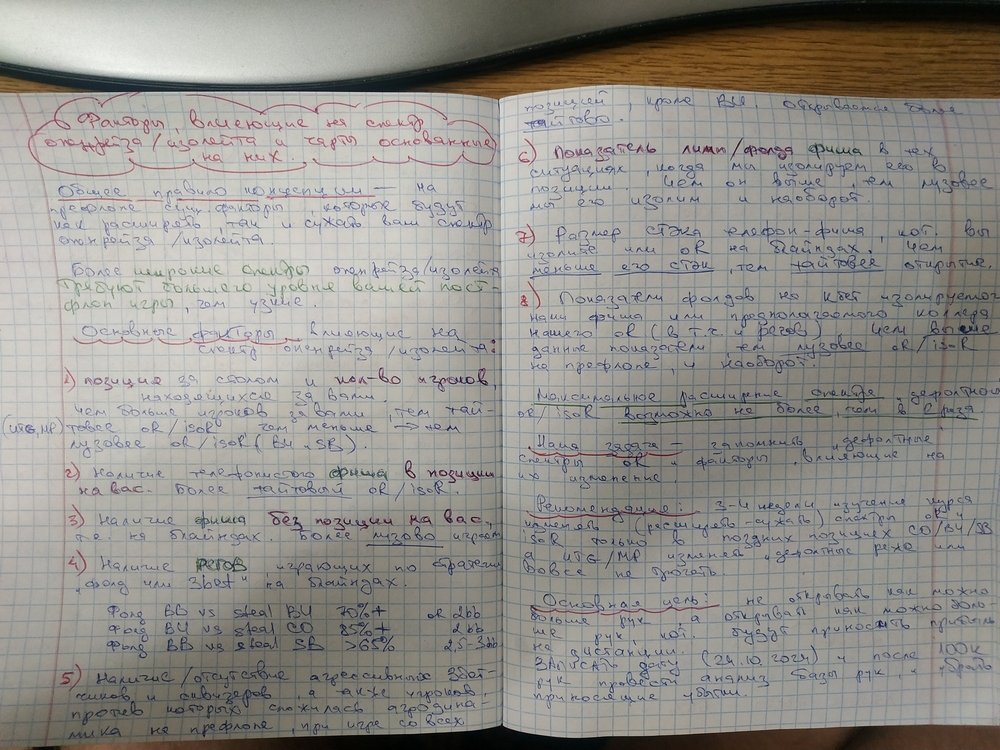 Факторы, влияющие на спектр
опенрейза/изолейта и чарты основанные
на них.
Общее правило концепции — на
префлопе есть факторы, которые будут
как расширять, так и сужать ваш спектр
опенрейза/изолейта
Более широкие спектры опенрейза/изолейта
требуют большего уровня вашей пост-
флоп игры, чем узкие.
Основные факторы влияющие на
спектр опенрейза/изолейта:
1) позиция за столом и кол-во игроков,
находящихся за вами.
Чем больше игроков за вами, тем тай-
(UTG, MP) товее oR/isoR чем меньше → тем
лузовее oR/isoR (BU, SB).
2) Наличие телефонистого фиша в позиции
на вас. Более тайтовый oR/isoR.
3) Наличие фиша без позиции на вас,
т.е. на блайндах. Более лузово играем
4) Наличие регов играющих по стратегии
"фолд или 3bet" на блайндах.
Фолд BB vs steal BU 70%+ oR 2bb
Фолд BU vs steal CO 85%+ 2bb
Фолд BB vs steal SB >65% 2,5-3bb
5) Наличие/отсутствие агрессивных 3бет-
чиков и сквизеров, а также игроков,
против которых сложилась агродина-
мика на префлопе, при игре со всех
позиций, кроме BU. Открывается более
тайтово.
6) Показатель лимп/фолда фиша в тех
ситуациях, когда мы изолируем его в
позиции. Чем он выше, тем лузовее
мы его изолим и наоборот.
7) Размер стэка телефон-фиша, кот. вы
изолите или oR на блайндах. Чем
меньше его стэк, тем тайтовее открытие.
8) Показатели фолдов на кбет изолируемого
нами фиша или предполагаемого коллера
нашего oR (в т.ч. и регов). Чем выше
данные показатели, тем лузовее oR/isoR
на префлопе, и наоборот.
Максимальное расширение спектра дефолтного
oR/isoR возможно не более, чем в 2 раза
Наша задача — запомнить дефолтные
спектры oR и факторы, влияющие на
их изменение.
Рекомендация: 3-4 недели изучения курса
изменять (расширять-сужать) спектры oR и
isoR только в поздних позициях CO/BU/SB
а UTG/MP изменять дефолтные реже или
вовсе не трогать.
Основная цель: не открывать как можно
больше рук, а открывать как можно боль-
ше рук, кот. будут приносить прибыль
на дистанции.
Записать дату (24.10.2024) и после 100К
рук провести анализ базы рук, и убрать
приносящие убытки.